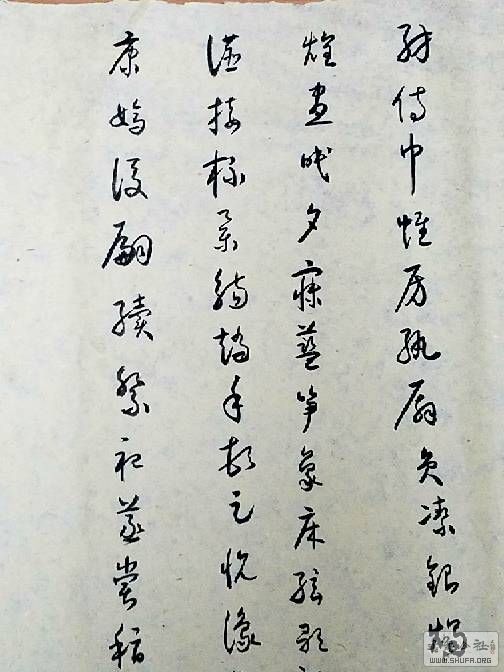 紡侍巾帷房紈扇員潔銀燭
煌晝眠夕寐藍笋象床弦歌
讌接杯舉觴矯手頓足悦豫
康嫡後嗣續祭祀蒸嘗稽
WWW.SHUFA.ORG